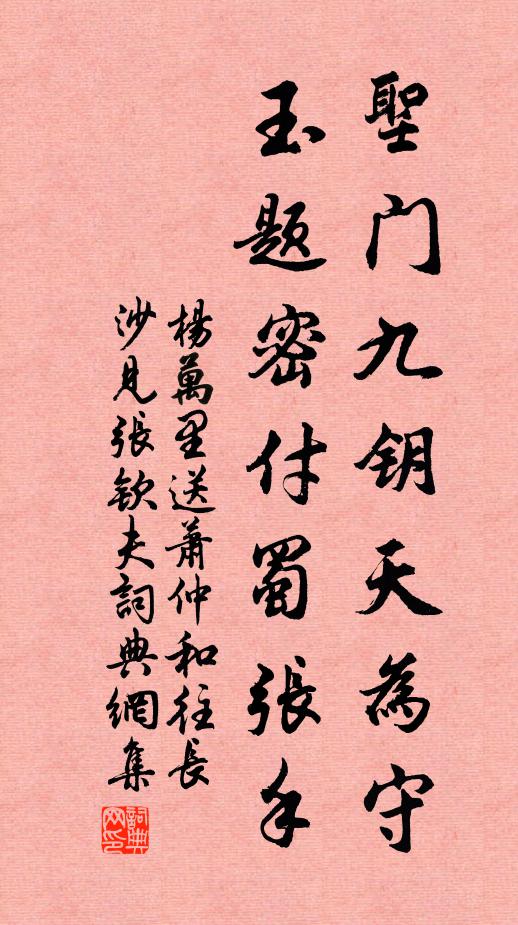 聖门九钥天為守
玉题密付蜀張手
楊萬里送蕭仲和往長
沙見張钦夫詞典網集
詞典
网印